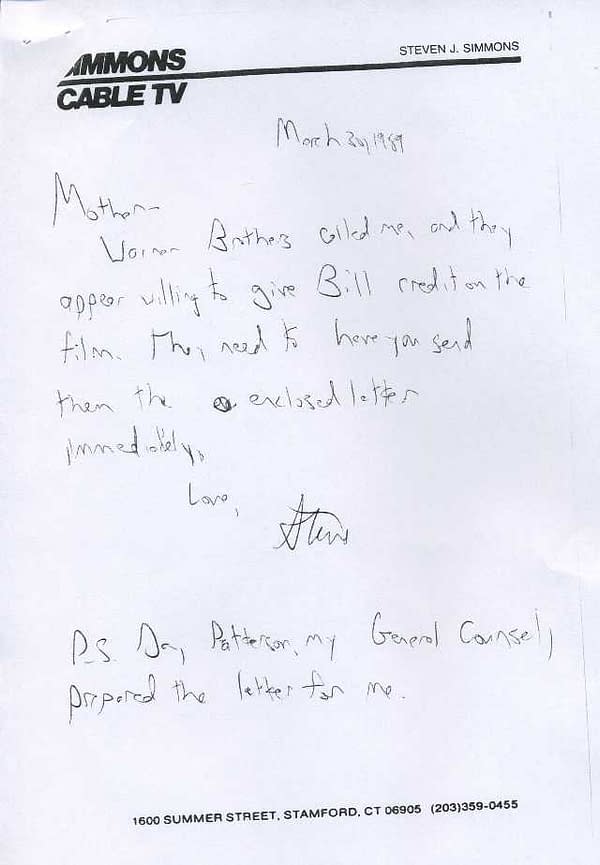 SIMMONS
CABLE TV
STEVEN J. SIMMONS
March 30, 1989
Mother-
Warner Brothers called me, and they
appear willing to give Bill credit on the
film. They need to have you send
them the enclosed letter
immediately.
Love,
Steve
P.S. Day Patterson, my General Counsel,
prepared the letter for me.
1600 SUMMER STREET, STAMFORD, CT 06905 (203)359-0455